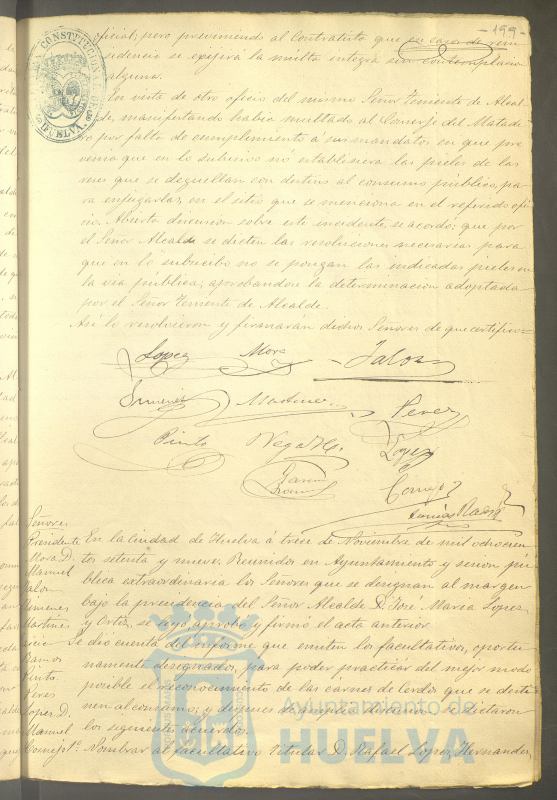 -199-
oficial; pero previniendo al Contratista que en caso de rein
cidencia se exijirá la multa integra sin contemplacion
alguna.
En vista de otro oficio del mismo Señor Teniente de Alcal
de, manifestando habia multado al Conserje del Matade
ro por falta de cumplimiento a sus mandatos en que pre
venia que en lo subcesivo no establesiera las pieles de las
reses que se deguellan con destino al consumo público, pa
ra enjugarlas, en el sitio que se menciona en el referido ofi
cio. Abierta discusion sobre este incidente, se acordó; que por
el Señor Alcalde se dicten las resoluciones necesarias para
que en lo subcecibo no se pongan las indicadas pieles en
la via pública, aprobandose la determinacion adoptada
por el Señor Teniente de Alcalde.
Asi lo resolvieron y firmarán dichos Señores de que certifico=
Lopez Mora Jalon
Jimenez Martinez Perez
Pinto Vega Lopez
Garcia Ramos Cornejo
Señores
Presidente
Mora D.
Manuel
Jalon
Jimenez
Martinez
Garcia
Ramos
Pinto
Peres
Lopez D.
Manuel
Cornejo
En la ciudad de Huelva á trece de Noviembre de mil ochocien
tos setenta y nueve. Reunidos en Ayuntamiento y sesion pú
blica extraordinaria los Señores que se designan al margen
bajo la presidencia del Señor Alcalde D. José Maria Lopez
y Ortiz, se leyó, aprobó y firmó el acta anterior.
Se dió cuenta del informe que emiten los facultativos, oportu
namente designados, para poder practicar del mejor modo
posible el reconocimiento de las carnes de cerdos que se desti
nen al consumo; y despues de amplia discusion se dictaron
los siguientes acuerdos.
1º. Nombrar al facultativo titular D. Rafael Lopez Hernandez,
CONSTITUCIONAL
HUELVA
Ayuntamiento de
HUELVA